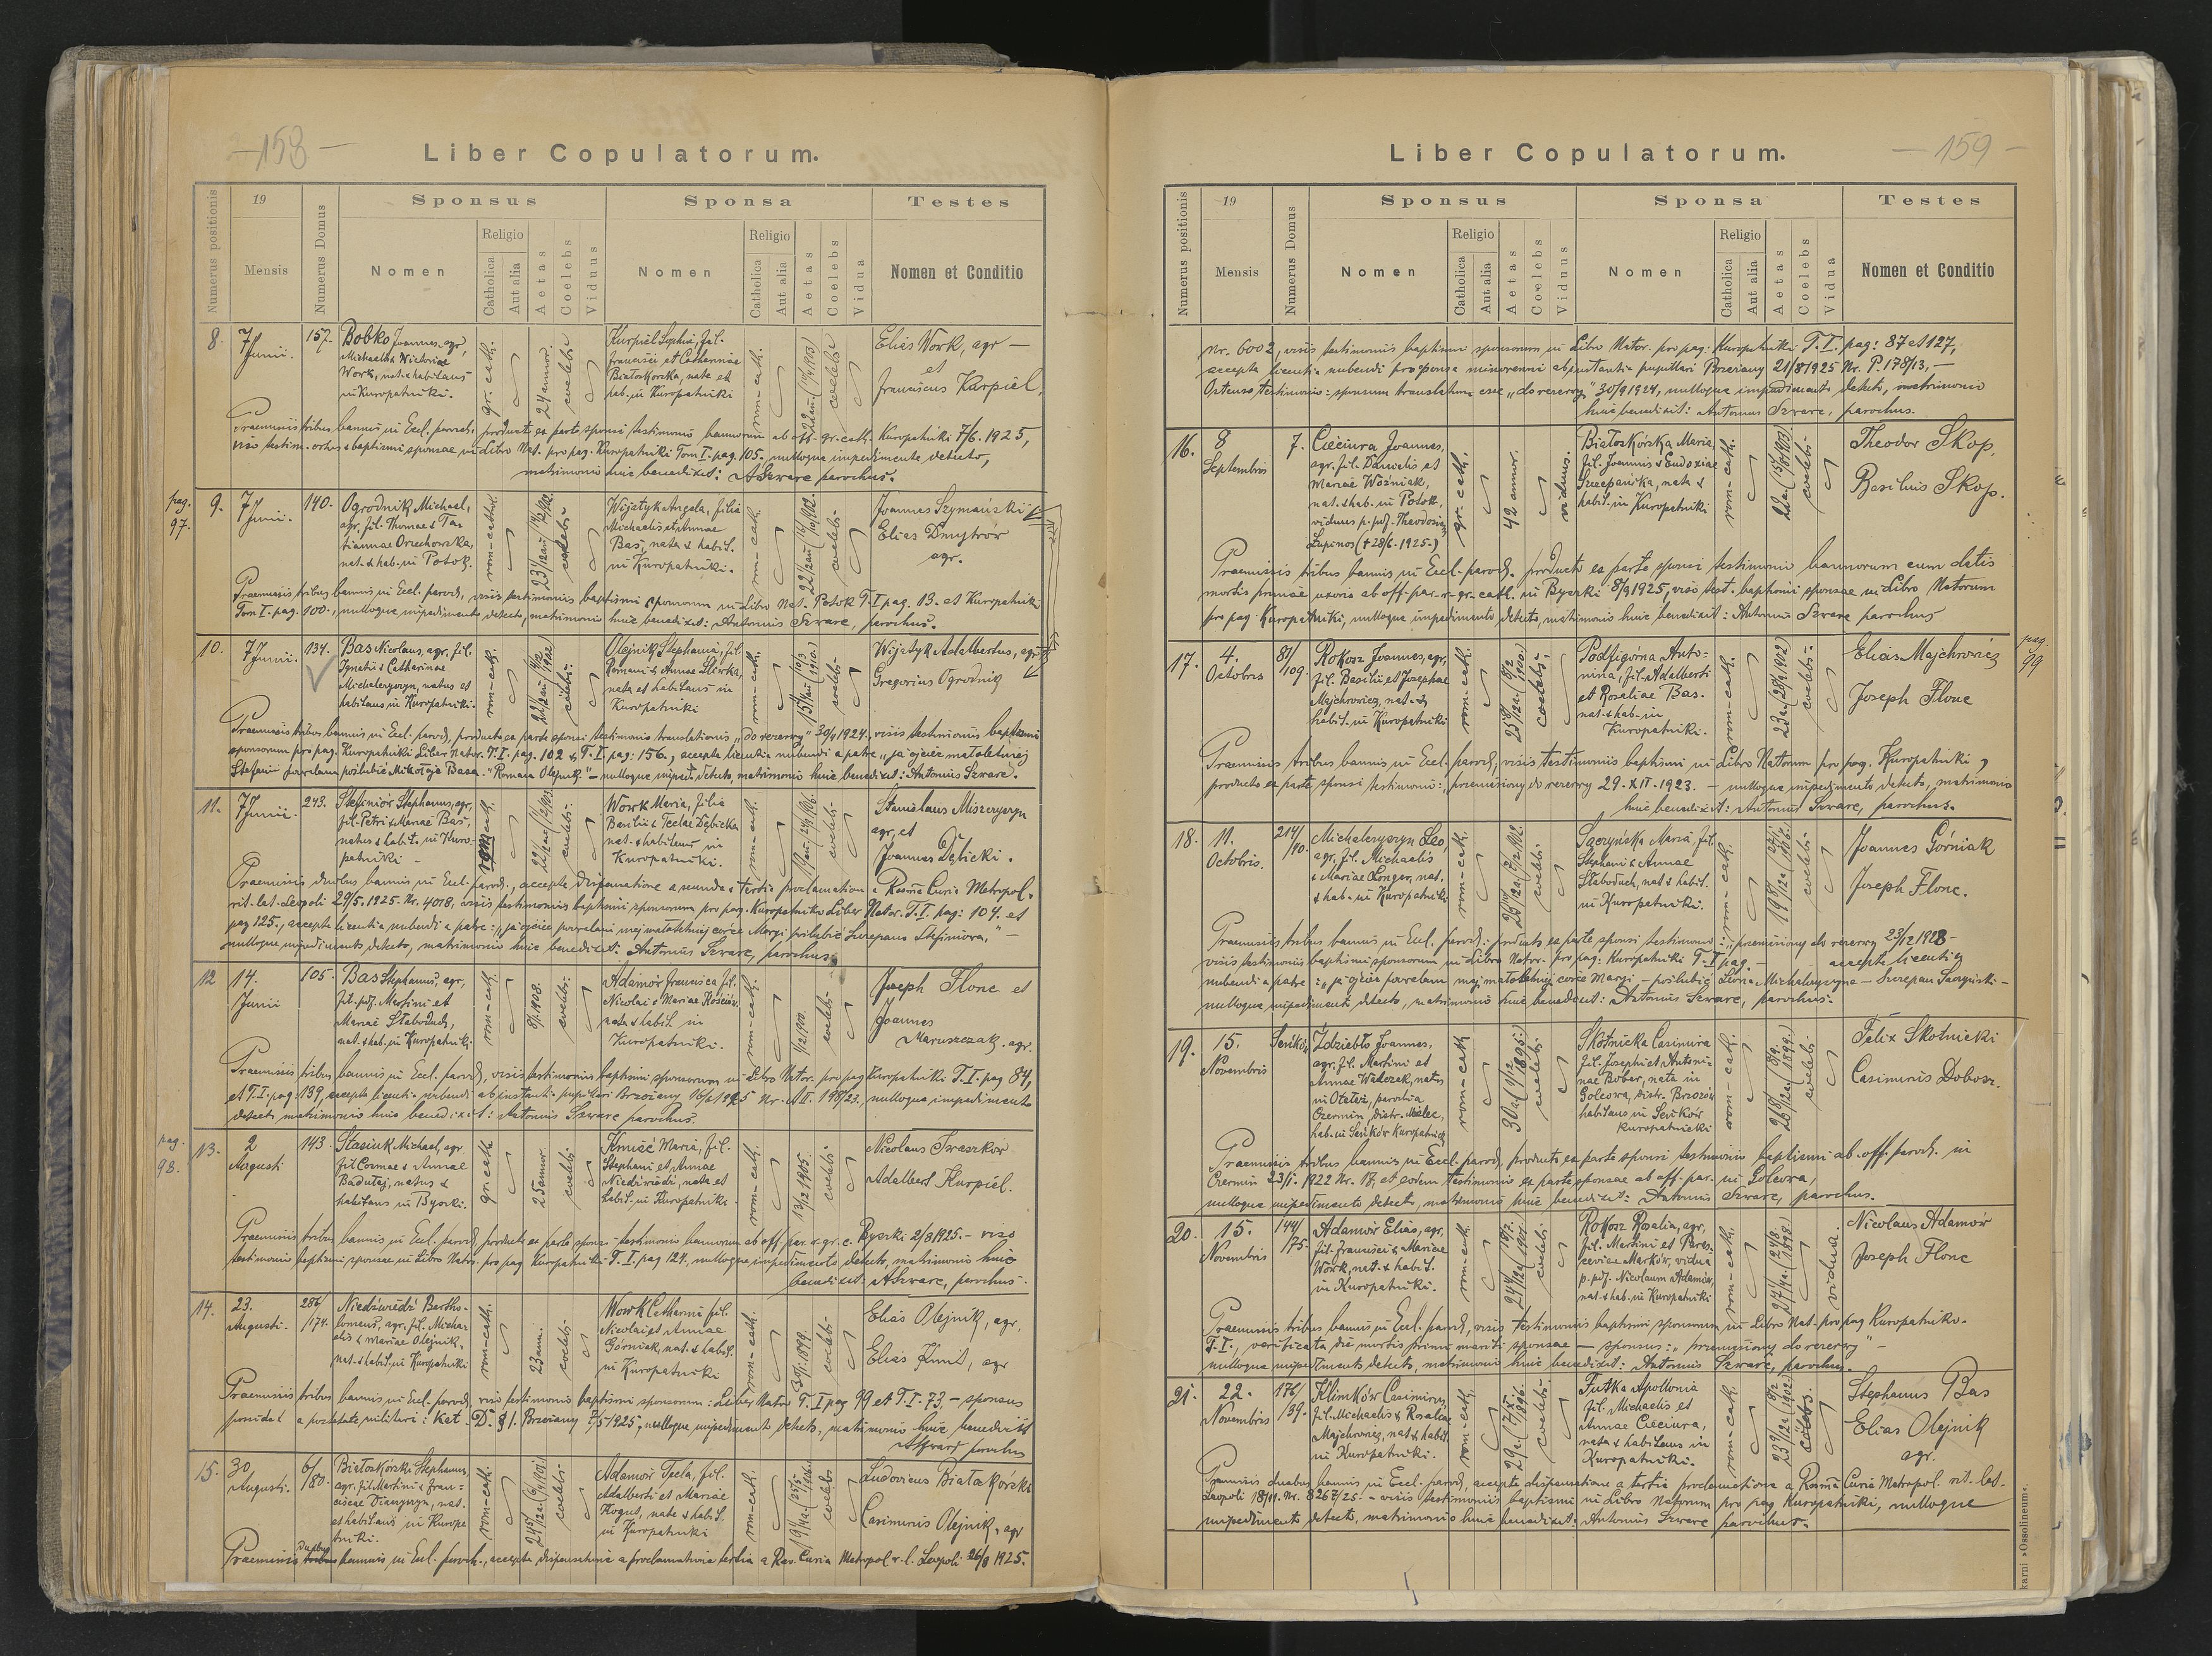 —158—
Liber Copulatorum.
Numerus positionis
19
Mensis
Numerus Domus
Sponsus
Nomen
Religio
Catholica
Aut alia
Aetas
Coelebs
Viduus
Sponsa
Nomen
Religio
Catholica
Aut alia
Aetas
Coelebs
Vidua
Testes
Nomen et Conditio
8.
7
Junii.
157.
Bobko Joannes, agr,
Michaelis & Victoriae
Work, nat. & habitans
in Kuropatniki.
gr. cath.
24 annor.
coelebs
Kurpiel Sophia, fil.
Francisci et Catharinae
Białoskorska, nata et
hab. in Kuropatniki
rom-cath.
coelebs
Elias Work, agr —
et
Franciscus Karpiel.
Praemissis tribus bannis in Eccl. paroch. producto ex parte sponsi testimonio bannorum ab off. gr. cath. Kuropatniki 7/6. 1925,
viso testim. ortus & baptismi sponsae in Libro Nat. pro pag. Kuropatniki Tom I. pag. 105. nulloque impedimento detecto,
matrimonio huic benedixit: ASzwarc parochus.
pag.
97.
9.
7
Junii.
140.
Ogrodnik Michael,
agr. fil. Thomae & Ta-
tiannae Orzechowska,
nat. & hab. in Potok.
rom-cathol.
coelebs
Wijatyk Angela, filia
Michaelis et Annae
Bas, nata & habit.
in Kuropatniki.
rom-cath.
coelebs
Joannes Szymański
Elias Dmytrow
agr.
Praemissis tribus bannis in Eccl. paroch, visis testimoniis baptismi sponsorum in Libro Nat. Potok T. I pag. 13. et Kuropatniki
Tom I. pag. 100., nulloque impedimento detecto, matrimonio huic benedixit: Antonius Szwarc, parochus.
10.
7 Junii.
134.
Bas Nicolaus, agr. fil.
Ignatii & Catharinae
Michalczyszyn, natus et
habitans in Kuropatniki.
rom-cath.
coelebs
Olejnik Stephania, fil.
Romani & Annae Skirka,
nata et habitans in
Kuropatniki
rom-cath.
coelebs
Wijatyk Adalbertus, agr.
Gregorius Ogrodnik
Praemissis tribus bannis in Eccl. paroch, producto ex parte sponsi testimonio translationis „do rezerwy" 30/9 1924, visis testimoniis baptismi
sponsorum pro pag. Kuropatniki Liber Nator. T. I. pag. 102 & T. I. pag. 156., accepta licentia nubendi a patre „ja ojciec małoletniej
Stefanii pozwalam poślubić Mikołaja Basa. "Romana Olejnik" – nulloque imped. detecto, matrimonio huic benedixit: Antonius Szwarc.
11.
7 Junii.
243.
Stefiniów Stephanus, agr,
fil. Petri & Mariae Bas,
natus & habit. in Kuro-
patniki –
rom-cath.
coelebs
Work Maria, filia
Basilii & Teclae Dębicka
nat. & habitans in
Kuropatniki.
rom-cath.
coelebs
Stanislaus Miszczyszyn
agr, et
Joannes Dębicki.
Praemissis duobus bannis in Eccl. paroch., accepta dispensatione a secunda & tertia proclamatione a Rssma Curia Metropol.
rit. lat. Leopoli 29/5. 1925. Nr. 4018, visis testimoniis baptismi sponsorum pro pag. Kuropatniki Liber Nator. T. I. pag: 104. et
pag 125., accepta licentia nubendi a patre: „ja ojciec pozwalam mej małoletniej córce Maryi poślubić Szczepana Stefiniowa," –
nulloque impedimento detecto, matrimonio huic benedixit: Antonius Szwarc, parochus.
12
14.
Junii
105.
Bas Stephanus, agr,
fil. pdf. Martini et
Mariae Słaboduch,
nat. & hab. in Kuropatniki
rom-cath.
8/1. 1908.
coelebs
Adamów Francisca fil.
Nicolai & Mariae Kościów
nata & habit. in
Kuropatniki.
rom-cath.
coelebs
Joseph Flonc et
Joannes
Maruszczak. agr.
Praemissis tribus bannis in Eccl. paroch, visis testimoniis baptismi sponsorum in Libro Nator. pro pag Kuropatniki T. I. pag 84,
et T. I. pag: 139, accepta licentia nubendi ab instantia pupillari Brzeżany 16/6 1925 Nr. A II. 198/23., nulloque impedimento
detecto, matrimonio huic benedixit: Antonius Szwarc parochus.
pag.
98.
13.
2
Augusti
143
Stasiuk Michael, agr
fil Cosmae & Annae
Badutej, natus &
habitans in Byszki.
gr. cath
25 annor.
coelebs
Kmieć Maria, fil.
Stephani et Annae
Niedźwiedź, nata et
habit. in Kuropatniki
rom-cath.
13/2 1905.
coelebs
Nicolaus Iraszków
Adalbert Kurpiel.
Praemissis tribus bannis in Eccl. paroch, producto ex parte sponsi testimonio bannorum ab off. par. r. gr. c. Byszki 2/8 1925. – viso
testimonio baptismi sponsae in Libro Nator. pro pag Kuropatniki T. I. pag 124. nulloque impedimento detecto, matrimonio huic
benedixit. ASzwarc, parochus.
14.
23.
Augusti.
286/
/174.
Niedźwiedź Bartho-
lomaeus, agr. fil. Micha-
elis & Mariae Olejnik,
nat. & habit. in Kuropatniki
rom-cath.
23 ann.
coelebs
Work Catharina fil.
Nicolai et Annae
Górniak, nat. & habit.
in Kuropatniki
rom-cath.
30/1. 1899.
coelebs
Elias Olejnik, agr.
Elias Kmit, agr
Praemissis tribus bannis in Eccl. paroch, visis testimoniis baptismi sponsorum: Liber Nator T. I pag 99 et T. I. 73. – sponsus
a potestate militari: Kat. D. § 1. Brzeżany 7/5 1925, nulloque impedimento detecto, matrimonio huic benedixit
ASzwarc parochus
15.
30
Augusti.
6/
/80.
Białoskórski Stephanus,
agr. fil. Martini & Fran-
ciscae Dianyszyn, nat.
et habitans in Kuropa
tniki.
rom-cath.
coelebs
Adamów Tecla, fil.
Adalberti et Mariae
Kogut, nata & habit.
in Kuropatniki
rom-cath.
coelebs
Ludovicus Białoskórski
Casimirus Olejnik, agr
Praemissis duobus bannis in Eccl. paroch., accepta dispensatione a proclamatione tertia a Rev. Curia Metropol r. l. Leopoli 26/8 1925.
—159—
Liber Copulatorum.
Numerus positionis
19
Mensis
Numerus Domus
Sponsus
Nomen
Religio
Catholica
Aut alia
Aetas
Coelebs
Viduus
Sponsa
Nomen
Religio
Catholica
Aut alia
Aetas
Coelebs
Vidua
Testes
Nomen et Conditio
Nr. 6002, visis testimoniis baptismi sponsorum in Libro Nator. pro pag. Kuropatniki T. I. pag: 87 et 127,
accepta licentia nubendi pro sponsa minorenni ab instantia pupillari Brzeżany 21/8 1925 Nr. P. 178/13, –
Ostenso testimonio: sponsum translatum esse „do rezerwy" 30/9 1924, nulloque impedimento detecto, matrimonio
huic benedixit: Antonius Szwarc, parochus.
16.
8
Septembris
7.
Cieciura Joannes,
agr. fil. Danielis et
Mariae Woźniak,
nat. & hab. in Potok,
viduus p. pdf. Theodosiam
Łupinos (+ 28/6. 1925.)
gr. cath.
42 annor.
viduus.
Białoskórska Maria,
fil. Joannis & Eudoxiae
Szczepańska, nata &
habit. in Kuropatniki
rom-cath.
coelebs
Theodor Skop.
Basilius Skop.
Praemissis tribus bannis in Eccl. paroch. producto ex parte sponsi testimonio bannorum cum datis
mortis primae uxoris ab off. par. r. gr. cath. in Byszki 8/9 1925, viso test. baptismi sponsae in Libro Natorum
pro pag Kuropatniki, nulloque impedimento detecto, matrimonio huic benedixit: Antonius Szwarc parochus
pag.
99
17.
4.
Octobris
81/
109.
Rokosz Joannes, agr,
fil. Basilii et Josephae
Majchrowicz, nat. &
habit. in Kuropatniki
rom-cath.
coelebs
Podfigórna Anto-
nina, fil. Adalberti
et Rosaliae Bas.
nat. & hab. in
Kuropatniki.
rom-cath.
coelebs
Elias Majchrowicz
Joseph Flonc
Praemissis tribus bannis in Eccl. paroch, visis testimoniis baptismi in Libro Natorum pro pag. Kuropatniki,
producto ex parte sponsi testimonio: „przeniesiony do rezerwy 29. XII. 1923. – nulloque impedimento detecto, matrimonio
huic benedixit: Antonius Szwarc, parochus.
18.
11.
Octobris.
214/
/40.
Michalczyszyn Leo,
agr. fil. Michaelis
& Mariae Longar, nat.
& hab. in Kuropatniki
rom-cath.
coelebs
Saczyńska Maria, fil.
Stephani & Annae
Słaboduch, nat & habit.
in Kuropatniki.
rom-cath.
coelebs
Joannes Górniak
Joseph Flonc.
Praemissis tribus bannis in Eccl. paroch. producto ex parte sponsi testimonio: „przeniesiony do rezerwy 23/12 1923 –
visis testimoniis baptismi sponsorum in Libro Nator. pro pag. Kuropatniki T. I pag. – accepta licentia
nubendi a patre: „ja ojciec pozwalam mej małoletniej córce Maryi – poślubić Leona Michalczyszyna – Szczepan Saczyński –
nulloque impedimento detecto, matrimonio huic benedixit: Antonius Szwarc, parochus.
19.
15.
Novembris
Seńków
Żdziebło Joannes,
agr. fil. Martini et
Annae Walczak, natus
in Otałęż, parochia
Czermin, distr. Mielec,
hab. in Seńków Kuropatnicki
rom-cath
coelebs
Skotnicka Casimira
fil. Josephi et Antoni-
nae Bober, nata in
Golcowa, distr. Brzozów
habitans in Seńków
Kuropatnicki
rom-cath.
coelebs
Felix Skotnicki
Casimirus Dobosz.
Praemissis tribus bannis in Eccl. paroch, producto ex parte sponsi testimonio baptismi ab off. paroch. in
Czermin 23/1. 1922 Nr. 18, et eodem testimonio ex parte sponsae ab off. par. in Golcowa,
nulloque impedimento detecto, matrimonio huic benedixit: Antonius Szwarc, parochus.
20.
15.
Novembris
144/
/75.
Adamów Elias, agr,
fil. Francisci & Mariae
Work, nat. & habit.
in Kuropatniki.
rom-cath.
coelebs
Rokosz Rosalia, agr,
fil. Martini et Paras-
ceviae Marków, vidua
p. pdf. Nicolaum Adamów,
nat. & hab. in Kuropatniki
rom-cath.
vidua.
Nicolaus Adamów
Joseph Flonc
Praemissis tribus bannis in Eccl. paroch, visis testimoniis baptismi sponsorum in Libro Nat. pro pag Kuropatniki –
T. I., verificata die mortis primi mariti sponsae – sponsus: „przeniesiony do rezerwy" –
nulloque impedimento detecto, matrimonio huic benedixit: Antonius Szwarc, parochus.
21.
22.
Novembris
176/
/39.
Klimków Casimirus,
fil. Michaelis & Rosaliae
Majchrowicz, nat & habit.
in Kuropatniki.
rom-cath.
coelebs
Futka Apollonia
fil. Michaelis et
Annae Cieciura,
nata & habitans in
Kuropatniki.
rom-cath.
coelebs.
Stephanus Bas
Elias Olejnik
agr.
Praemissis duobus bannis in Eccl. paroch, accepta dispensatione a tertia proclamatione a Rssma Curia Metropol. rit. lat.
Leopoli 18/11. Nr. 8267/25 – visis testimoniis baptismi in Libro Natorum pro pag Kuropatniki, nulloque
impedimento detecto, matrimonio huic benedixit: Antonius Szwarc parochus.
karni »Ossolineum«.